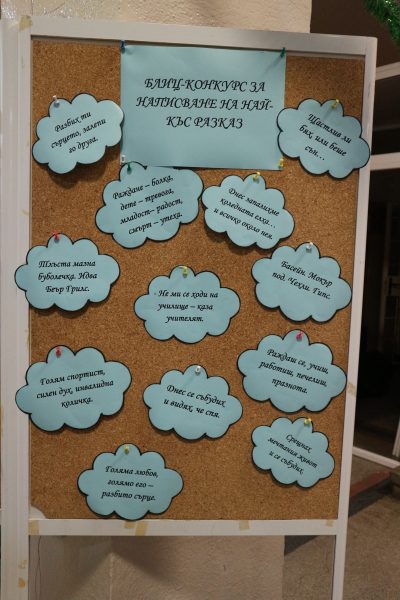 БЛИЦ-КОНКУРС ЗА
НАПИСВАНЕ НА НАЙ-
КЪС РАЗКАЗ
Разбих ти
сърцето, залепи
го друга.
Щастлив ли
бях, или беше
сън…
Раждане – болка,
дете – тревога,
младост– радост,
смърт – утеха.
Днес запалихме
коледната елха…
и всичко около нея.
Тлъста мазна
буболечка. Идва
Беър Грилс.
- Не ми се ходи на
училище – каза
учителят.
Басейн. Мокър
под. Чехли. Гипс.
Голям спортист,
силен дух, инвалидна
количка.
Днес се събудих
и видях, че спя.
Раждаш се, учиш,
работиш, печелиш,
празнота.
Голяма любов,
голямо его –
разбито сърце.
Срещнах
мечтания живот
и се събудих.